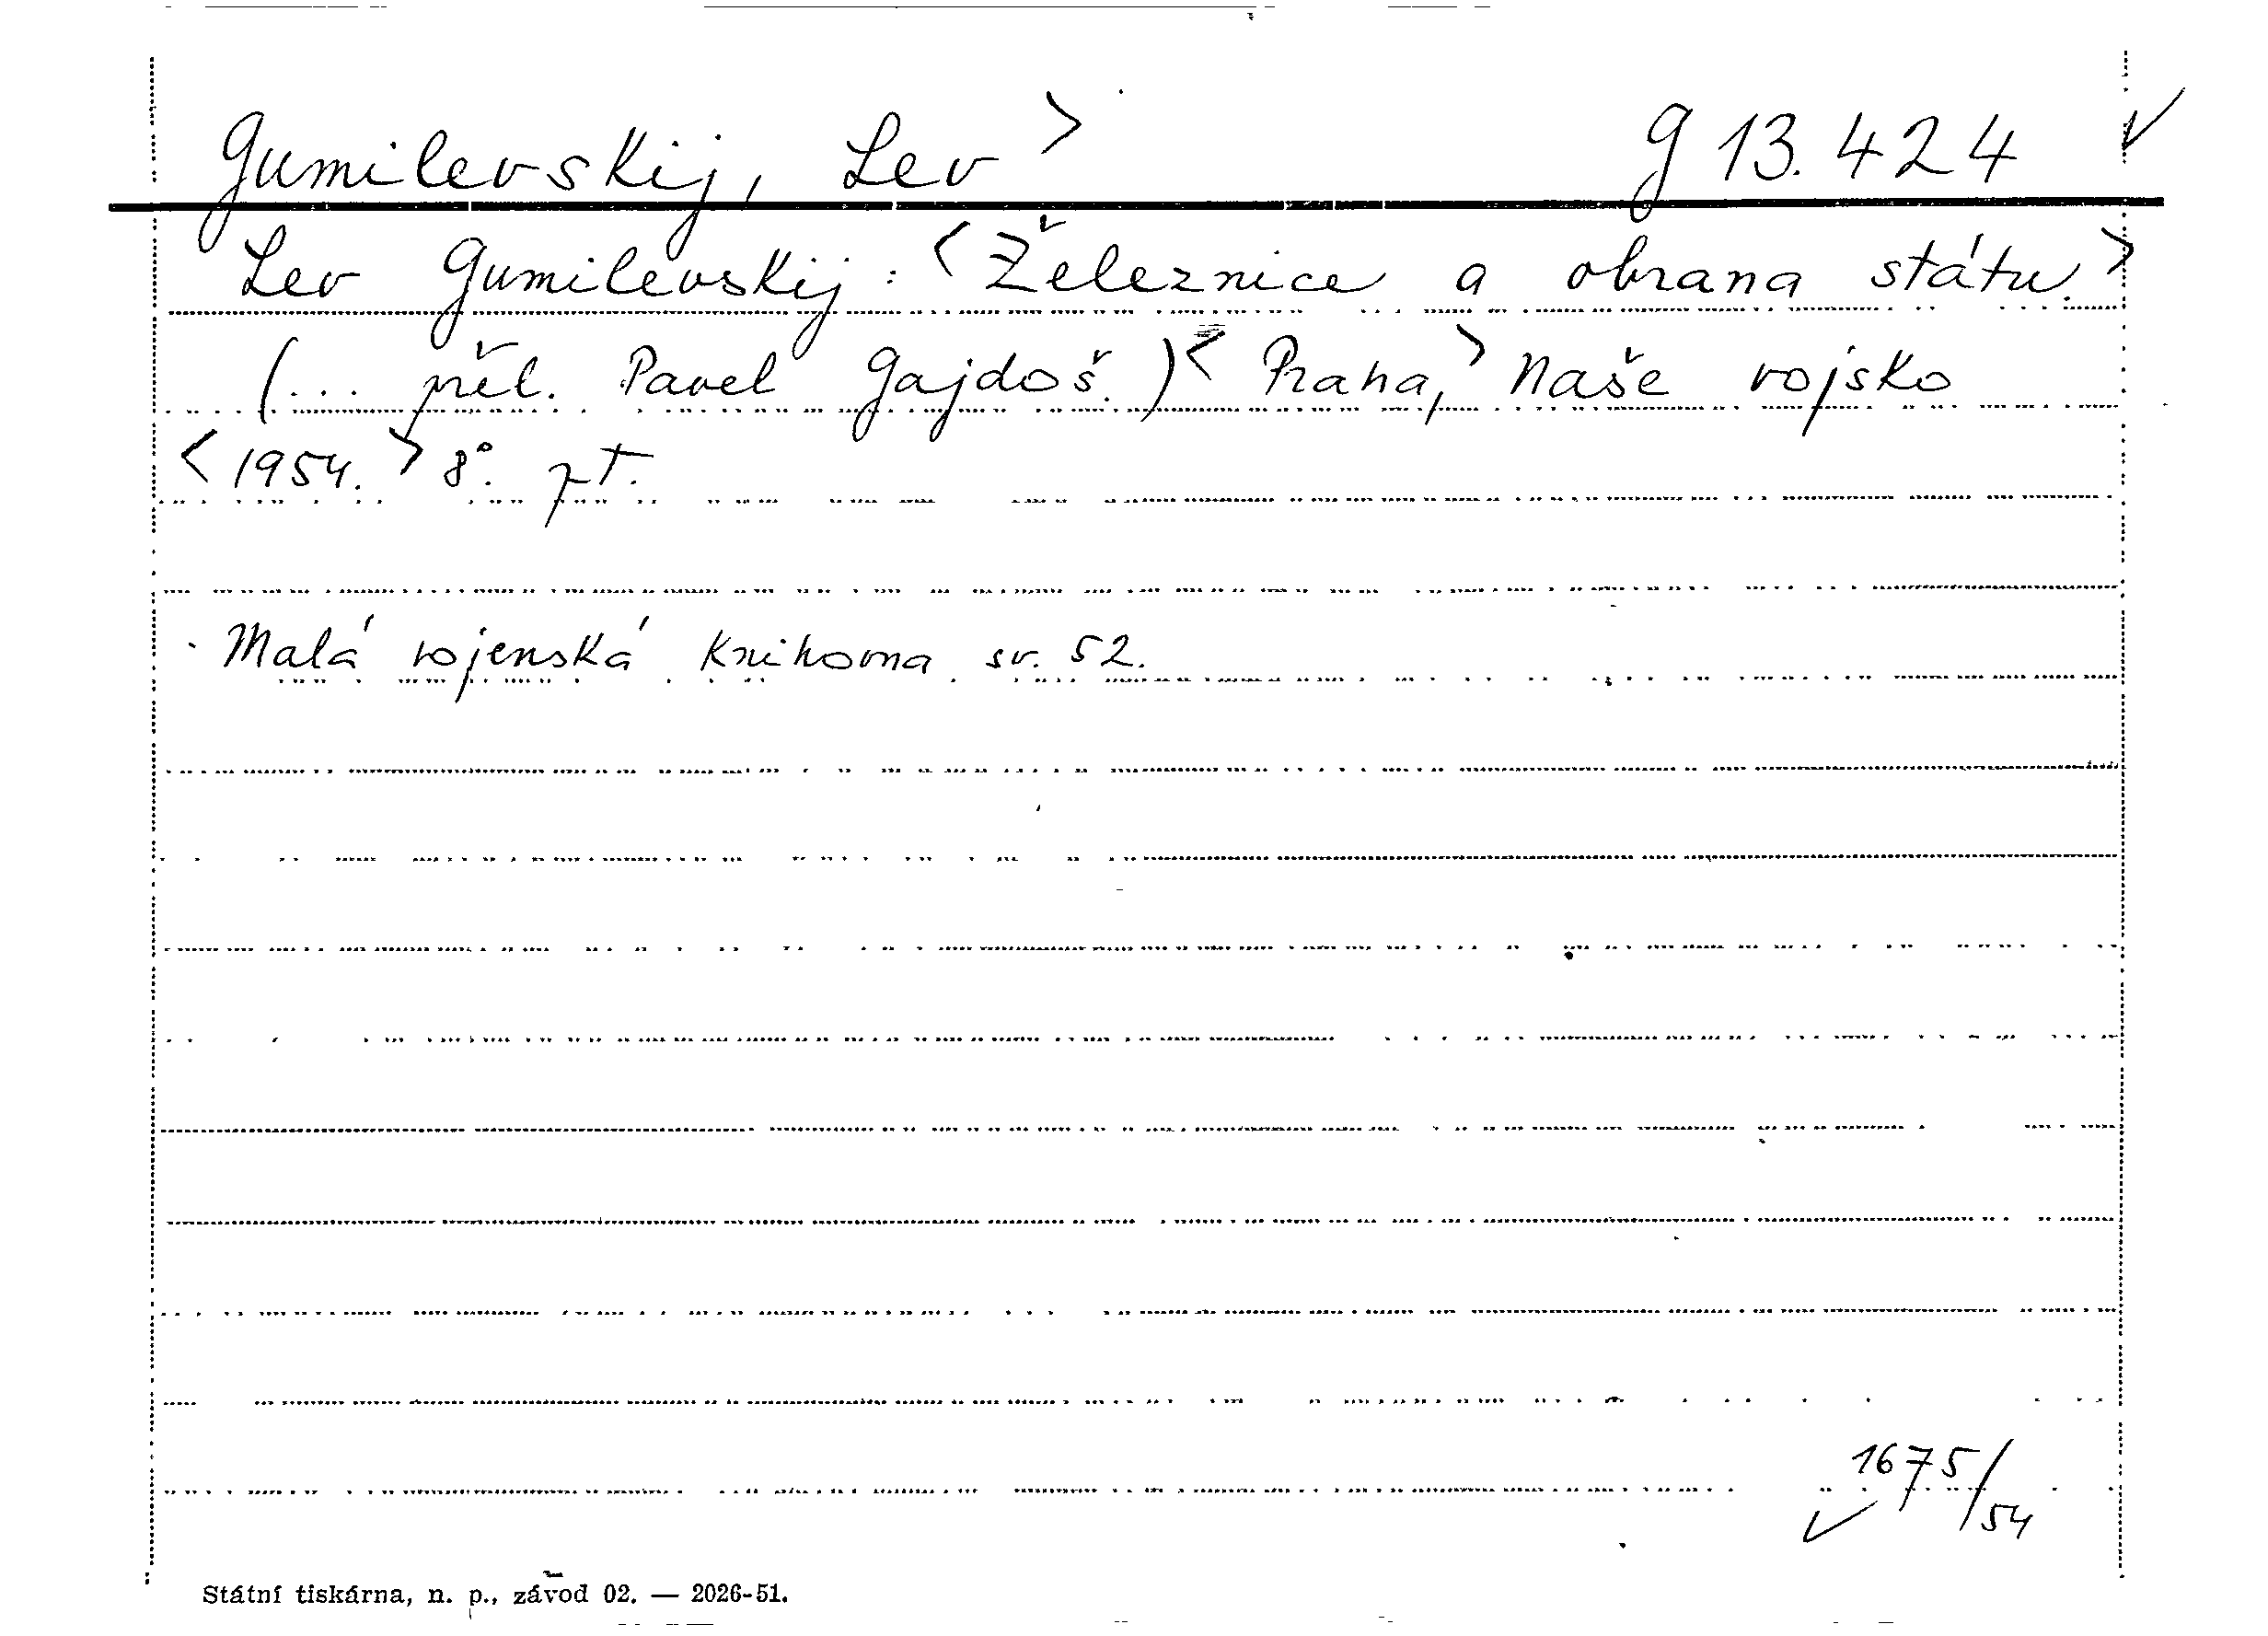 Gumilevskij, Lev > g 13.424 ✓
Lev Gumilevskij: <Železnice a obrana státu.>
(... přel. Pavel Gajdoš.) < Praha, > Naše vojsko
<1954.> 8°. pt.
Malá vojenská knihovna sv. 52.
1675/54
✓
Státní tiskárna, n. p., závod 02. — 2026-51.